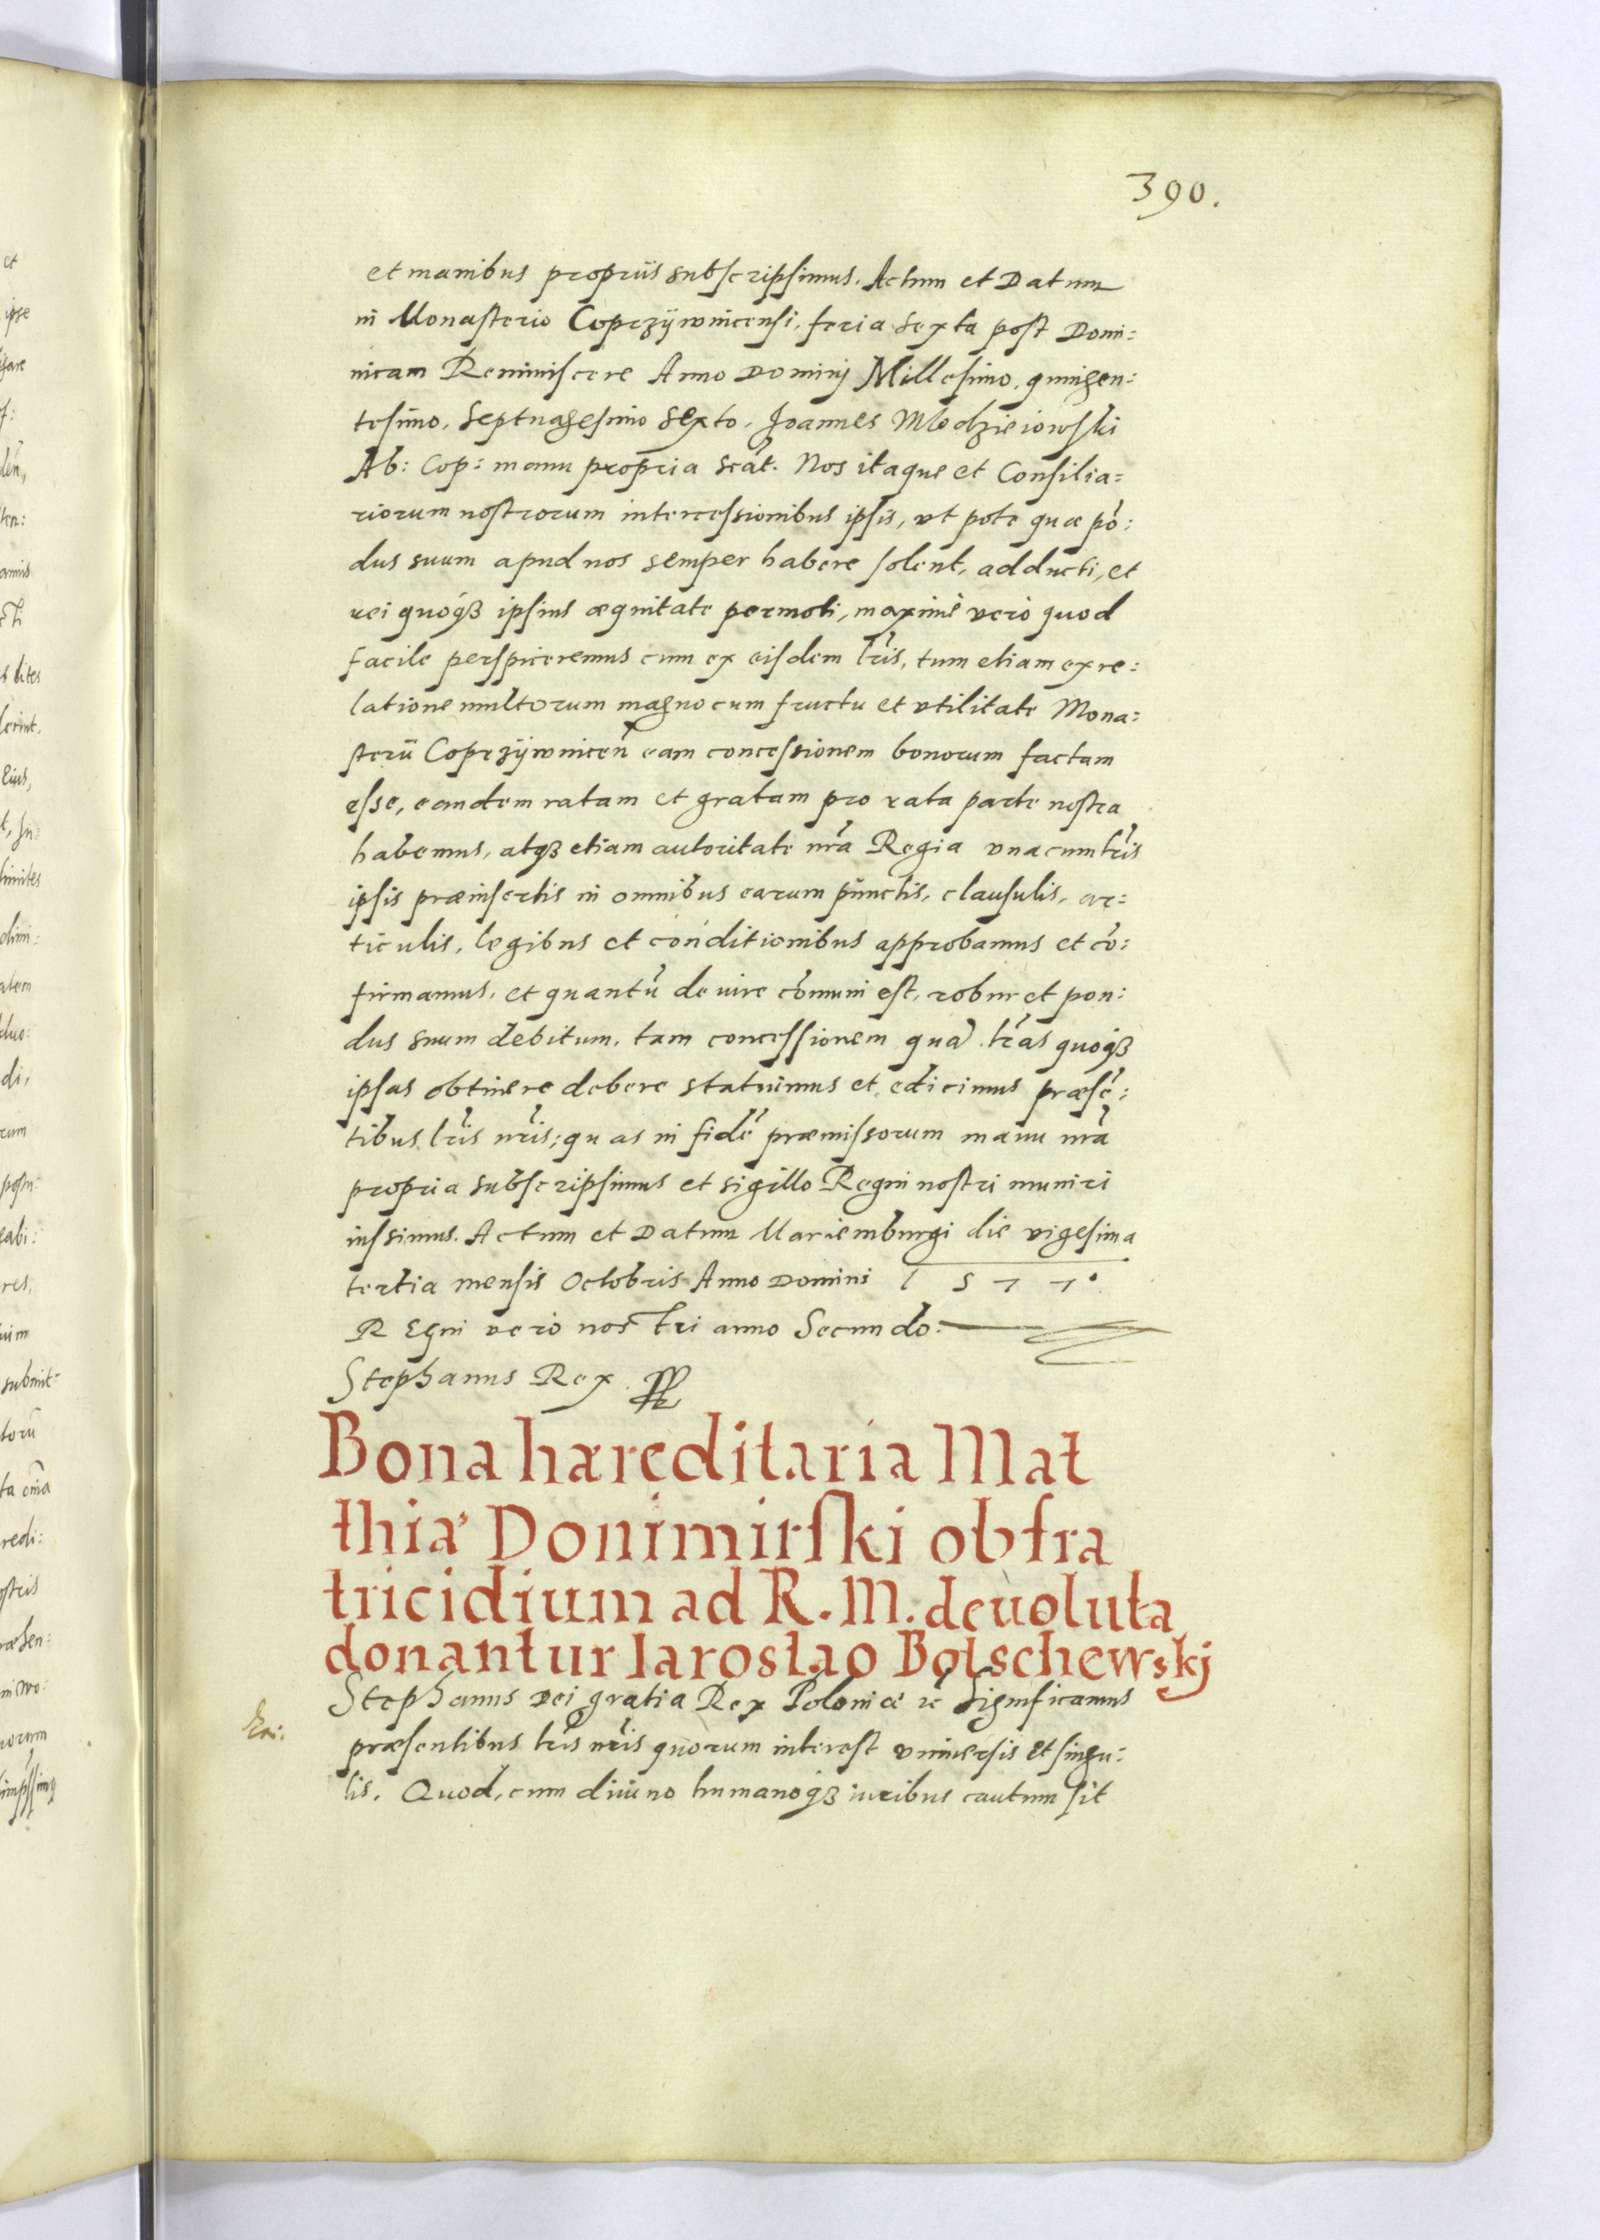 390.
et manibus propriis subscripsimus. Actum et Datum
in Monasterio Coprzijwnicensi, feria sexta post Domi:
nicam Reminiscere Anno Dominij Millesimo, quingen:
tesimo, Septuagesimo Sexto, Joannes Mlodzieiowski
Ab: Cop: manu propria scãt. Nos itaque et Consilia:
riorum nostrorum intercessionibus ipsis, vt pote quæ põ:
dus suum apud nos semper habere solent, adducti, et
rei quoqȝ ipsius æquitate permoti, maximè verò quod
facile perspiceremus cum ex eisdem lr̃is, tum etiam ex re:
latione multorum magno cum fructu et vtilitate Mona:
sterii Coprzijwniceñ eam concessionem bonorum factam
esse, eandem ratam et gratam pro rata parte nostra
habemus, atqȝ etiam autoritate nr̃a Regia vna cum lr̃is
ipsis præinsertis in omnibus earum punctis, clausulis, ar:
ticulis, legibus et conditionibus approbamus et cõ:
firmamus, et quantũ de iure cõmuni est, robur et pon:
dus suum debitum, tam concessionem quã lr̃as quoqȝ
ipsas obtinere debere statuimus et edicimus præsẽ:
tibus lr̃is nr̃is; quas in fidẽ præmissorum manu nr̃a
propria subscripsimus et sigillo Regni nostri muniri
iussimus. Actum et Datum Mariemburgi die vigesima
tertia mensis Octobris Anno Domini 1577.
Regni vero nostri anno Secundo.
Stephanus Rex.
Bona hæreditaria Mat
thiæ Donimirski ob fra
tricidium ad R. M. deuoluta
donantur Iaroslao Bolschewskj
Stephanus Dei gratia Rex Poloniæ ꝛc̃ Significamus
præsentibus lr̃is nr̃is quorum interest vniuersis et singu:
lis, Quod, cum diuino humanoqȝ iuribus cautum sit